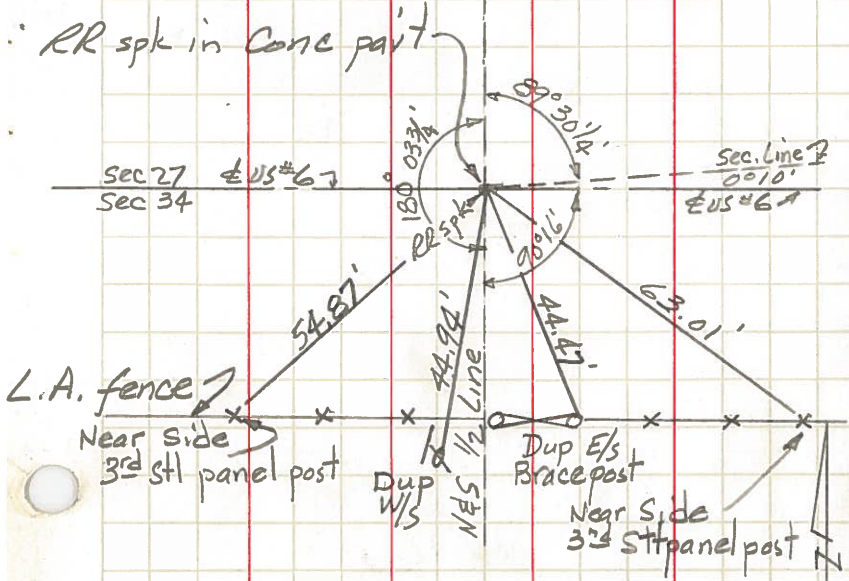 RR spk in Conc pav't
89°30 1/4'
180° 03 3/4'
Sec 27 ℄ US #6
Sec 34
Sec. Line
0°10'
℄ US #6
RR spk
90°16'
54.87'
44.94'
44.47'
63.01'
L.A. fence
N&S 1/2 Line
Near Side
3rd Stl panel post
Dup
W/S
Dup E/S
Brace post
Near Side
3rd Stl panel post
N